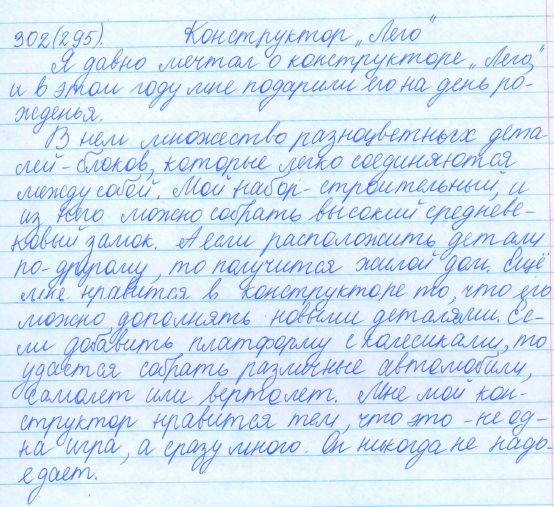 302(295). Конструктор „Лего"
Я давно мечтал о конструкторе „Лего,"
и в этом году мне подарили его на день ро-
жденья.
В нем множество разноцветных дета-
лей-блоков, которые легко соединяются
между собой. Мой набор - строительный, и
из него можно собрать высокий средневе-
ковый замок. А если расположить детали
по-другому, то получится жилой дом. Ещё
мне нравится в конструкторе то, что его
можно дополнять новыми деталями. Ес-
ли добавить платформу с колесиками, то
удастся собрать различные автомобили,
самолет или вертолет. Мне мой кон-
структор нравится тем, что это - не од-
на игра, а сразу много. Он никогда не надо-
едает.